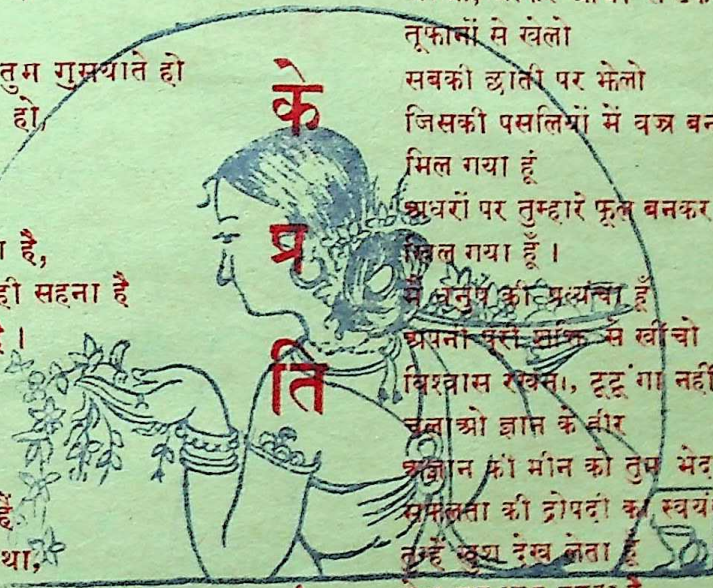 तुम गुसयाते हो
हो,
है,
ही सहना है
के
प्र
ति
तूफानों से खेलो
सबकी छाती पर झेलो
जिसकी पसलियों में वज्र बन
मिल गया हूं
अधरों पर तुम्हारे फूल बनकर
खिल गया हूँ ।
मैं धनुष की प्रत्यंचा हूँ
अपनी पूरी शक्ति से खींचो
विश्वास रखना, टूटूंगा नहीं
चलाओ ज्ञान के तीर
अज्ञान की मीन को तुम भेद
सफलता की द्रोपदी का स्वयं
तुम्हें खुश देख लेता हूँ
था,